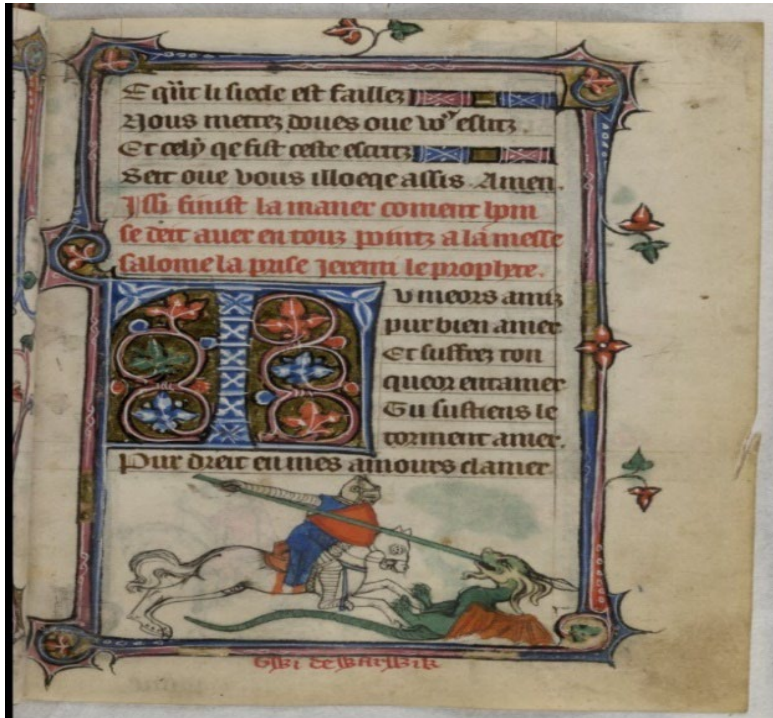 E qñt li siecle est faillez
Nous mettez doues oue voꝰ eslitz
Et celÿ qe fist ceste escritz
Seit oue vous illoeqe assis. Amen.
Issi finist la maner coment hom
se deit auer en touz pointz a la messe
Salome la prise Jeremi le prophete.
Tu meors amiz
pur bien amer
Et suffrez ton
queor entamer
Tu sustiens le
torment amer.
Pur dreit en mes amours clamer
Gwi de warwik